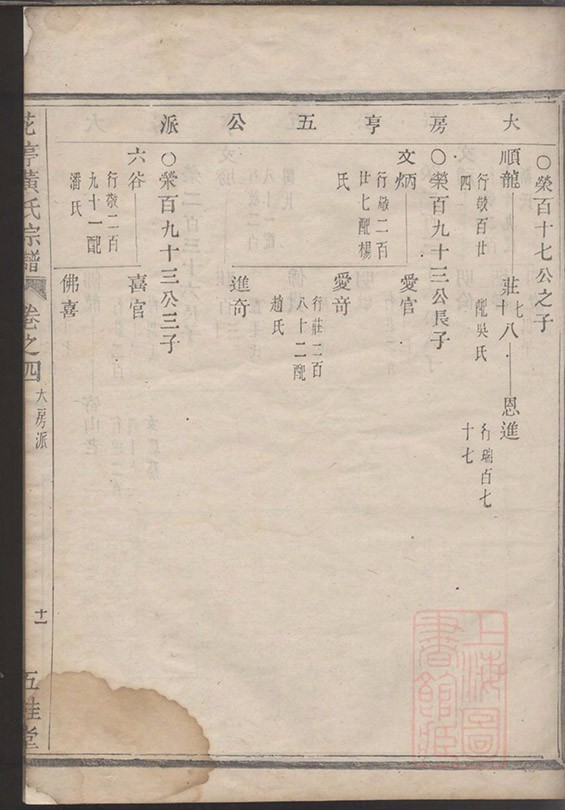 大房亨五公派
○榮百十七公之子
順龍 莊七十八 恩進
行敬百廿四 配吳氏 行瑞百七十七
○榮百九十三公長子
文炳 愛官
行敬二百廿七配楊氏
愛奇
行莊二百八十二配趙氏
進奇
○榮百九十三公三子
六谷 喜官
行敬二百九十一配潘氏
佛喜
花亭黃氏宗譜 卷之四 大房派 十一 五桂堂
上海圖書館藏